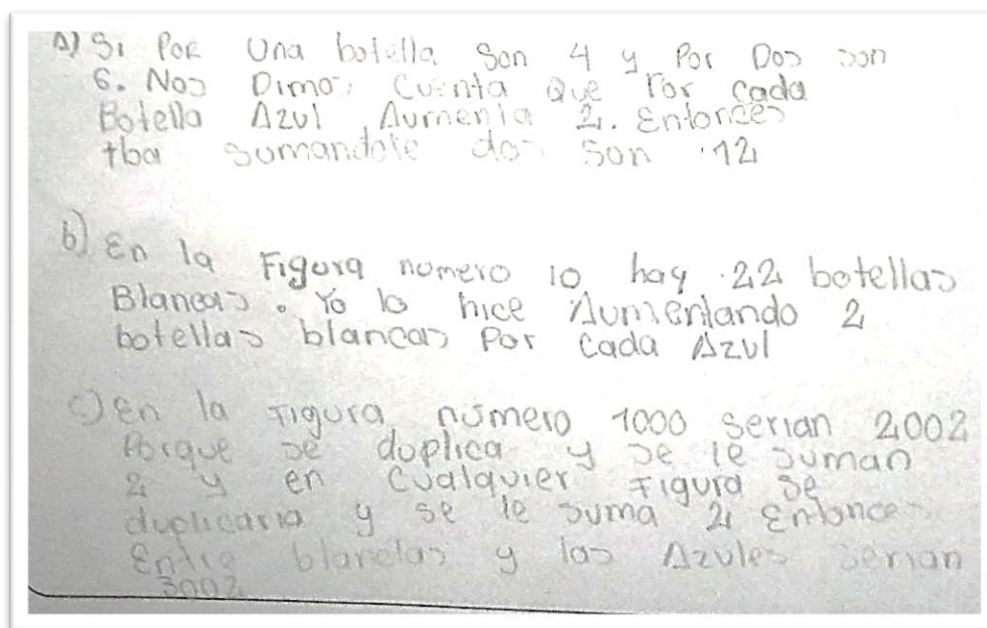 a) Si Por Una botella Son 4 y Por Dos son
6. Nos Dimos Cuenta Que Por cada
Botella Azul Aumenta 2. Entonces
iba sumandole dos Son 12
b) En la Figura numero 10 hay 22 botellas
Blancas. Yo lo hice Aumentando 2
botellas blancas Por Cada Azul
c) en la Figura número 1000 serian 2002
Porque se duplica y se le suman
2 y en Cualquier Figura se
duplicaria y se le suma 2 Entonces
Entre blancas y las Azules serian
3002